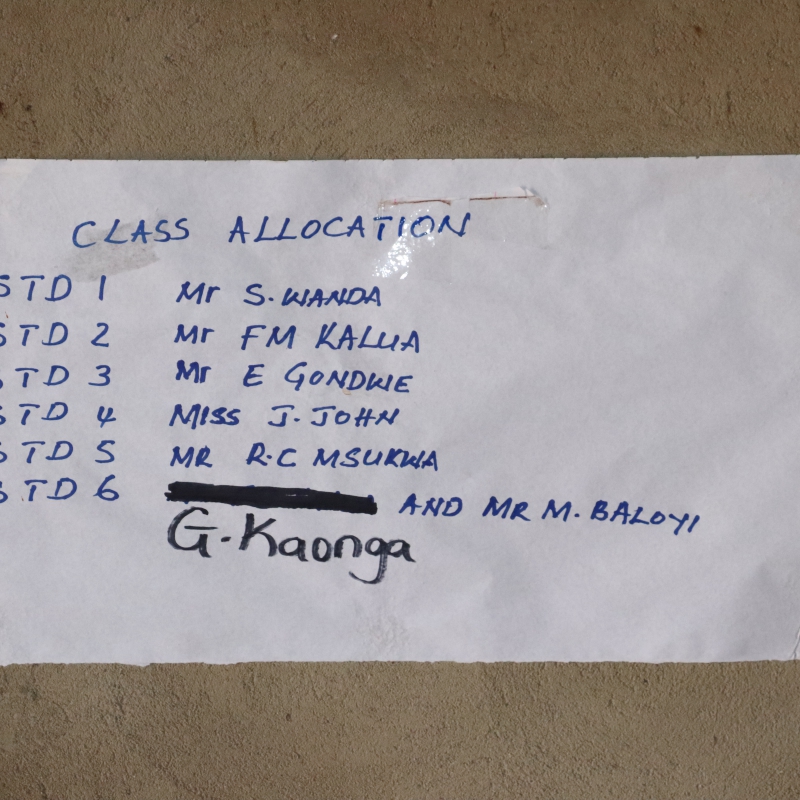 CLASS ALLOCATION
STD 1 Mr S. WANDA
STD 2 Mr FM KALUA
STD 3 Mr E GONDWE
STD 4 MISS J. JOHN
STD 5 MR R.C MSUKWA
STD 6 AND MR M. BALOYI
G. Kaonga